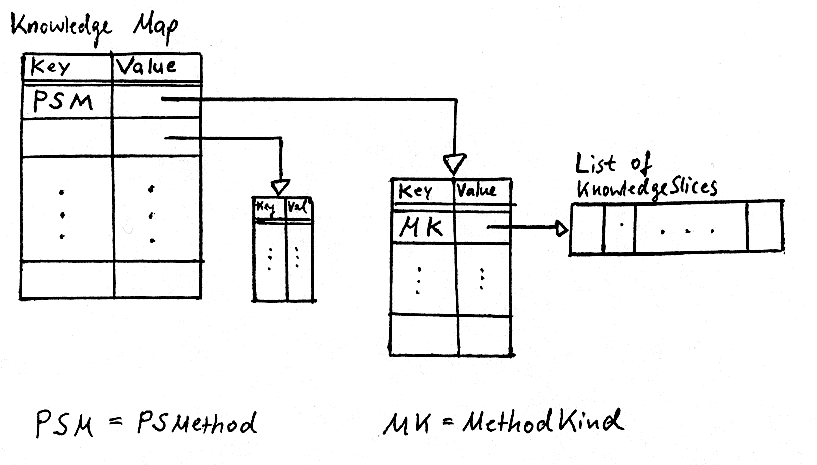 Knowledge Map
Key Value
PSM
Key Val
Key Value
MK
List of
KnowledgeSlices
PSM = PSMethod
MK = MethodKind